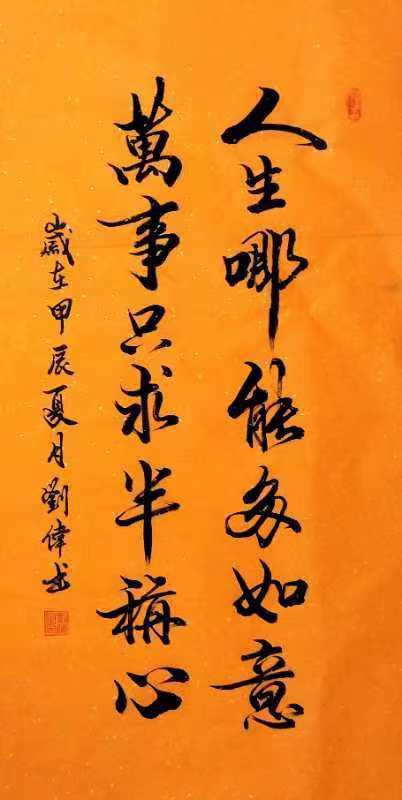 人生哪能多如意
萬事只求半稱心
歲在甲辰夏月劉偉书